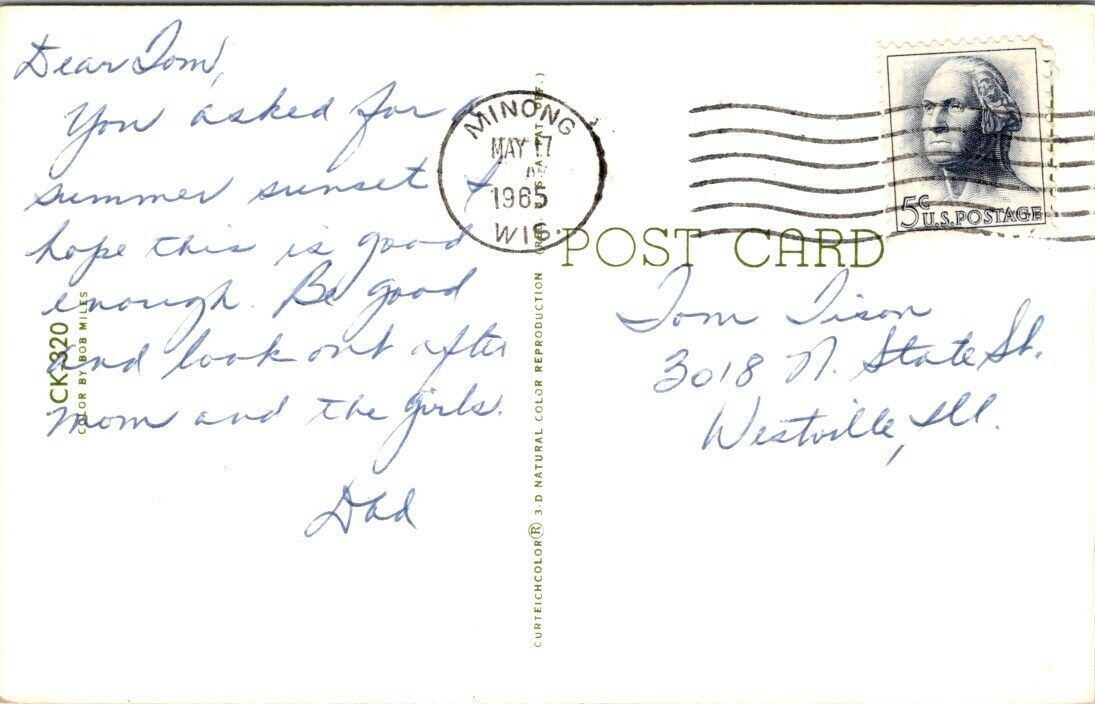 Dear Tom,
You asked for a
summer sunset &
hope this is good
enough. Be good
and look out after
mom and the girls.
Dad
CK-320
COLOR BY BOB MILES
MINONG
MAY 17
1965
WIS.
5c
U.S. POSTAGE
POST CARD
Tom Tison
3018 N. State St.
Westville, Ill.
CURTEICHCOLOR® 3-D NATURAL COLOR REPRODUCTION